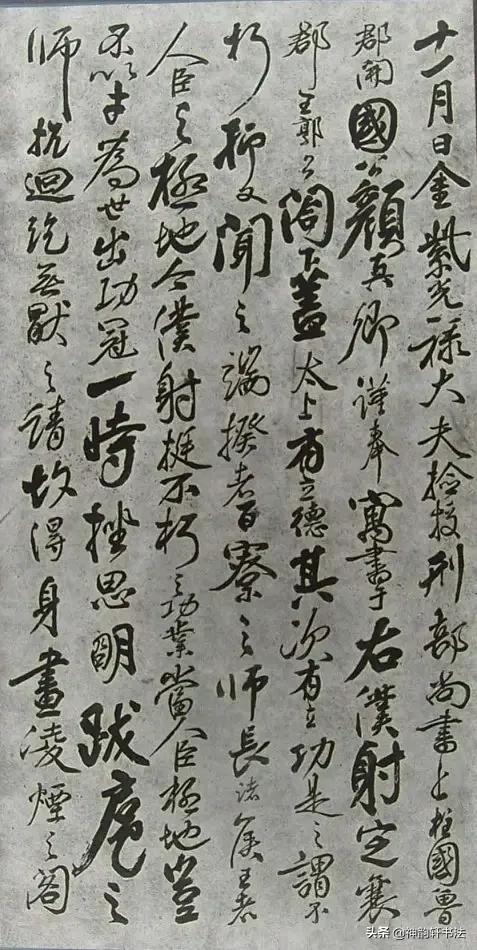 十一月日金紫光祿大夫檢校刑部尚書上柱國魯
郡開國公顏真卿謹奉寓書于右僕射定襄
郡王郭公閤下蓋太上有立德其次有立功是之謂不
朽抑又聞之端揆者百寮之師長諸侯王者
人臣之極地今僕射挺不朽之功業當人臣極地豈
不以才為世出功冠一時挫思明跋扈之
師抗迴紇無厭之請故得身畫凌煙之閣
头条 @神韵轩书法